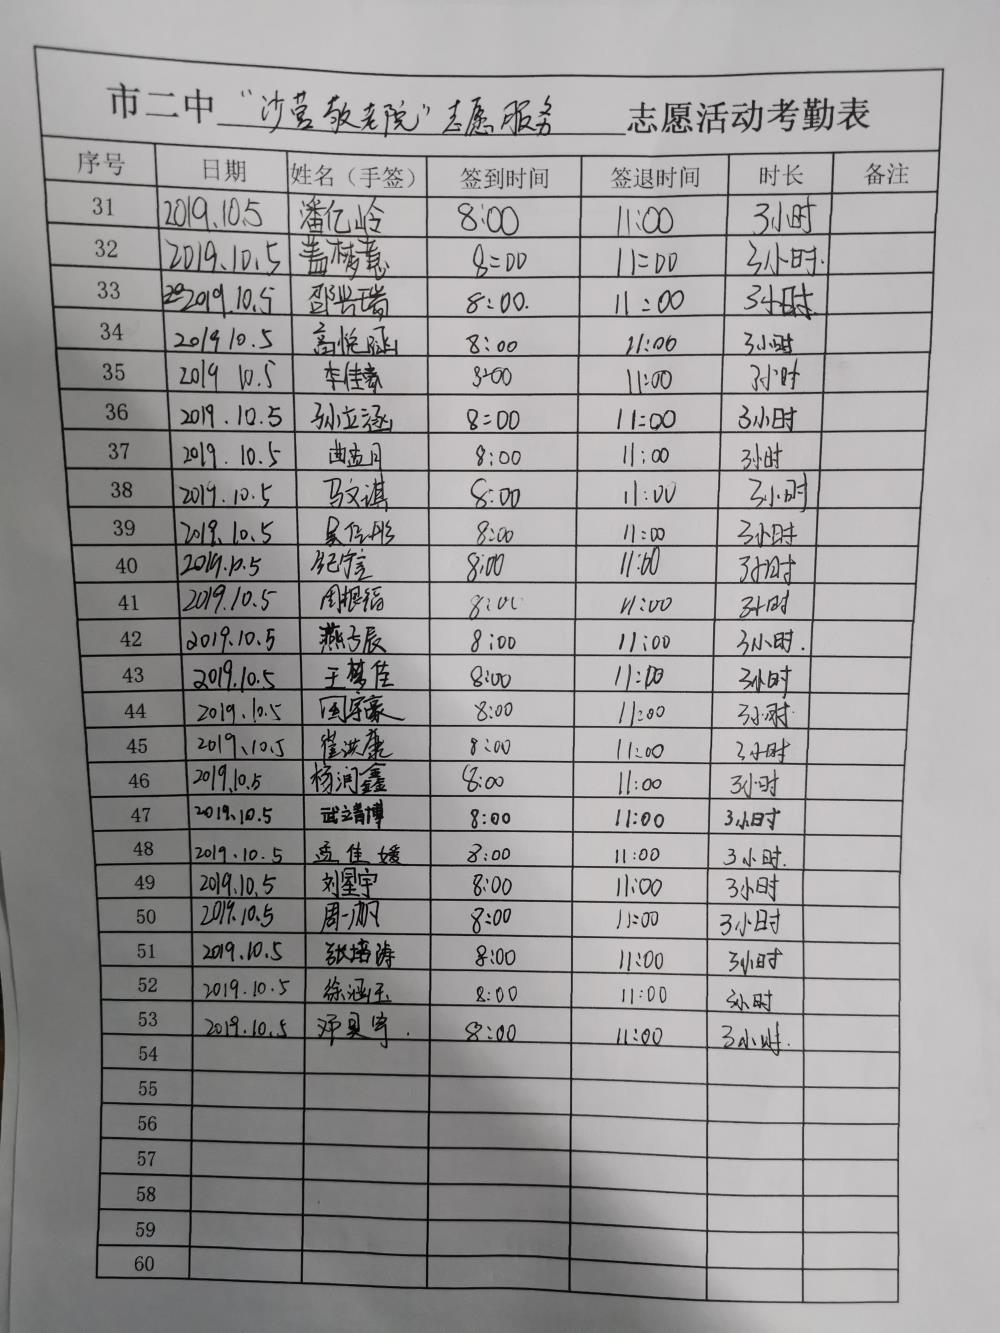 市二中“沙营敬老院”志愿服务志愿活动考勤表
序号 日期 姓名（手签） 签到时间 签退时间 时长 备注
31 2019.10.5 潘亿岭 8:00 11:00 3小时
32 2019.10.5 盖梦慧 8:00 11:00 3小时.
33 2019.10.5 邵兴瑞 8:00. 11:00 3小时.
34 2019 10.5 高悦涵 8:00 11:00 3小时
35 2019 10.5 李佳 8:00 11:00 3小时
36 2019.10.5 孙立涵 8:00 11:00 3小时
37 2019.10.5 曲孟月 8:00 11:00 3小时
38 2019.10.5 马文淇 8:00 11:00 3小时
39 2019.10.5 8:00 11:00 3小时
40 2019.10.5 8:00 11:00 3小时
41 2019.10.5 8:00 11:00 3小时
42 2019.10.5 8:00 11:00 3小时.
43 2019.10.5 王梦佳 8:00 11:00 3小时
44 2019.10.5 周宇豪 8:00 11:00 3小时.
45 2019.10.5 崔洪康 8:00 11:00 3小时
46 2019.10.5 杨润鑫 8:00 11:00 3小时
47 2019.10.5 武立博 8:00 11:00 3小时
48 2019.10.5 孟佳媛 8:00 11:00 3小时.
49 2019.10.5 刘星宇 8:00 11:00 3小时
50 2019.10.5 周一帆 8:00 11:00 3小时
51 2019.10.5 张培涛 8:00 11:00 3小时
52 2019.10.5 徐涵玉 8:00 11:00 3小时
53 2019.10.5 邓昊宇. 8:00 11:00 3小时.
54
55
56
57
58
59
60